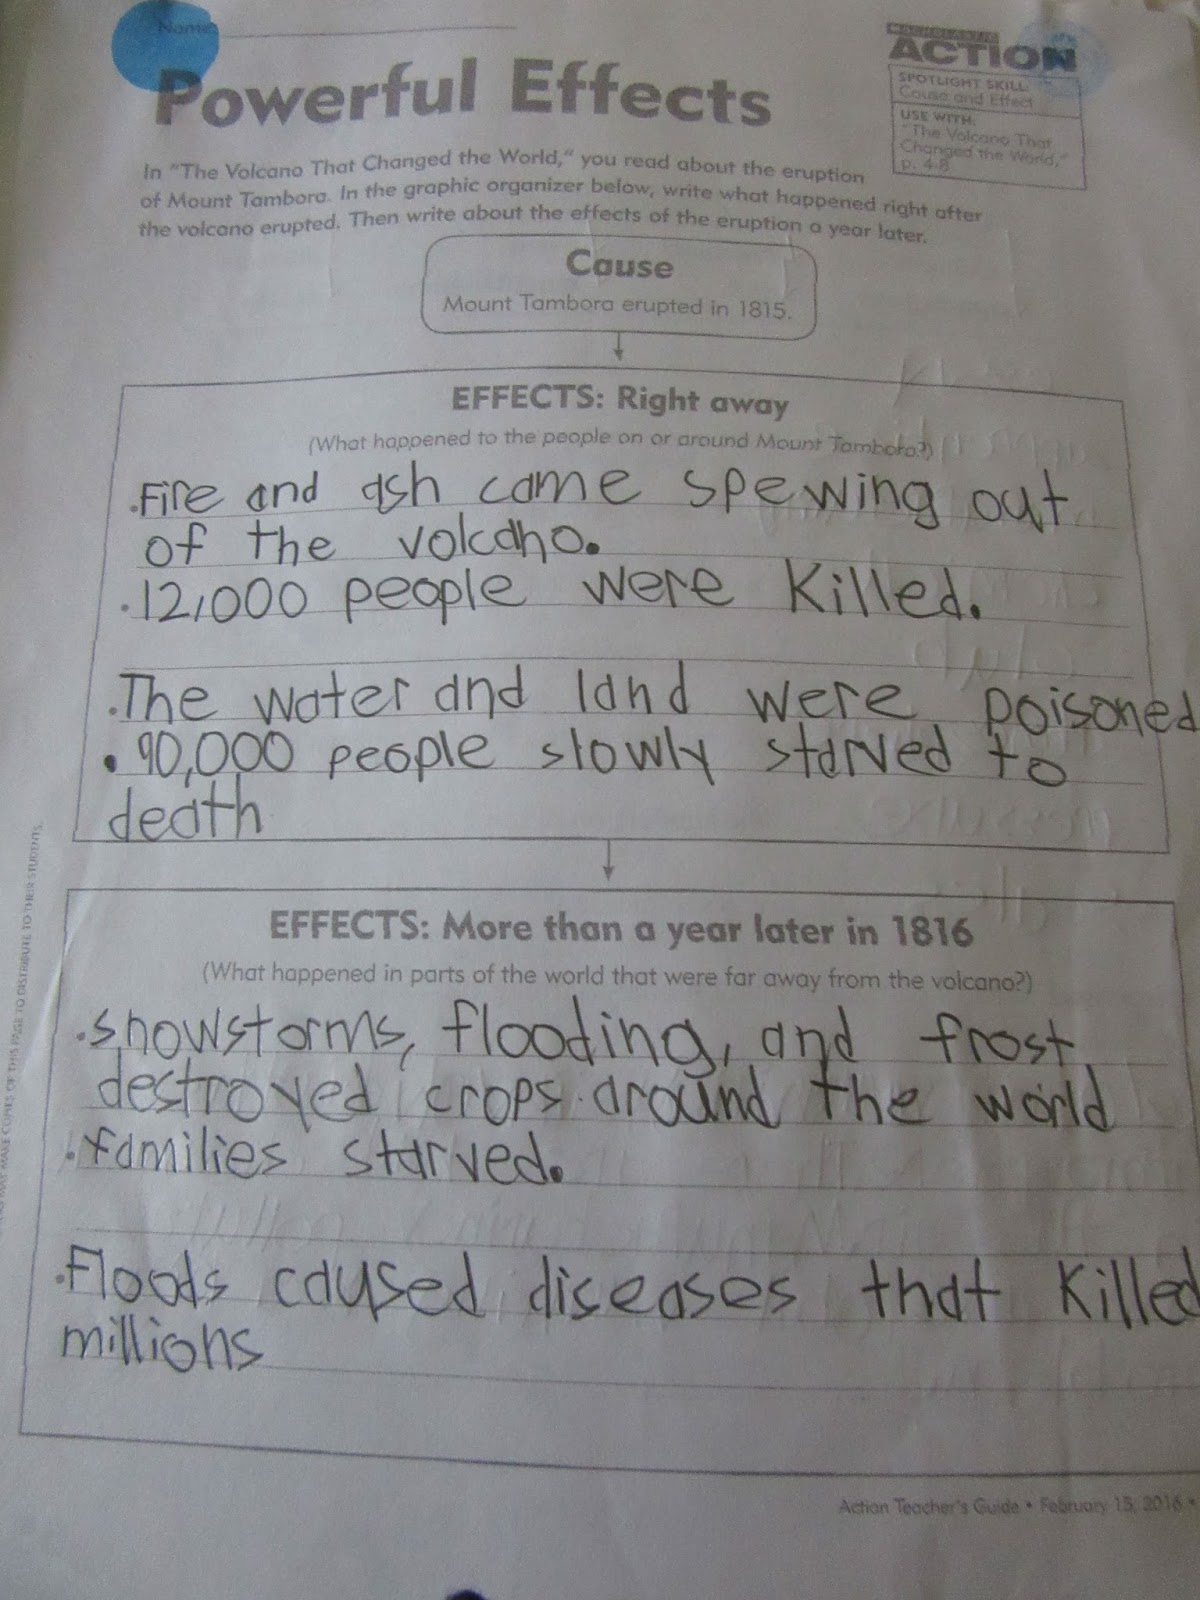 Name
Powerful Effects
SCHOLASTIC
ACTION
SPOTLIGHT SKILL:
Cause and Effect
USE WITH:
"The Volcano That
Changed the World,"
p. 4-8
In "The Volcano That Changed the World," you read about the eruption
of Mount Tambora. In the graphic organizer below, write what happened right after
the volcano erupted. Then write about the effects of the eruption a year later.
Cause
Mount Tambora erupted in 1815.
EFFECTS: Right away
(What happened to the people on or around Mount Tambora?)
.Fire and ash came spewing out
of the volcano.
.12,000 people were killed.
.The water and land were poisoned
. 90,000 people slowly starved to
death
EFFECTS: More than a year later in 1816
(What happened in parts of the world that were far away from the volcano?)
.snowstorms, flooding, and frost
destroyed crops. around the world
.families starved.
.Floods caused diseases that killed
millions
MAY MAKE COPIES OF THIS PAGE TO DISTRIBUTE TO THEIR STUDENTS.
Action Teacher's Guide • February 15, 2016 •